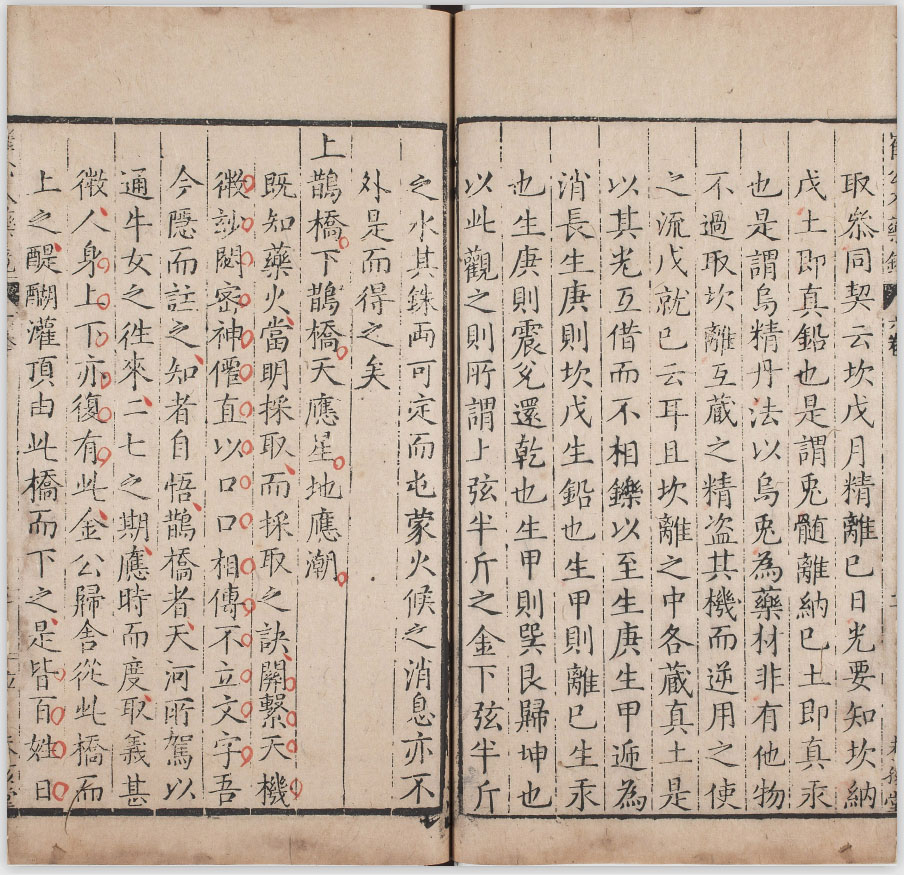 取叅同契云坎戊月精離巳日光要知坎納
戊土即真鉛也是謂兎髄離納巳土即真汞
也是謂烏精丹法以烏兎為藥材非有他物
不過取坎離互蔵之精盗其機而逆用之使
之流戊就巳云耳且坎離之中各蔵真土是
以其光互借而不相鑠以至生庚生甲逓為
消長生庚則坎戊生鉛也生甲則離巳生汞
也生庚則震兊還乾也生甲則巽艮歸坤也
以此觀之則所謂上弦半斤之金下弦半斤
之水其銖両可定而屯蒙火候之消息亦不
外是而得之矣
上鵲橋下鵲橋天應星地應潮
既知藥火當明採取而採取之訣關繫天機
微玅閟密神僊直以口口相傳不立文字吾
今隱而註之知者自悟鵲橋者天河所駕以
通牛女之徃來二七之期應時而度取義甚
微人身上下亦復有此金公歸舍從此橋而
上之醍醐灌頂由此橋而下之是皆百姓日